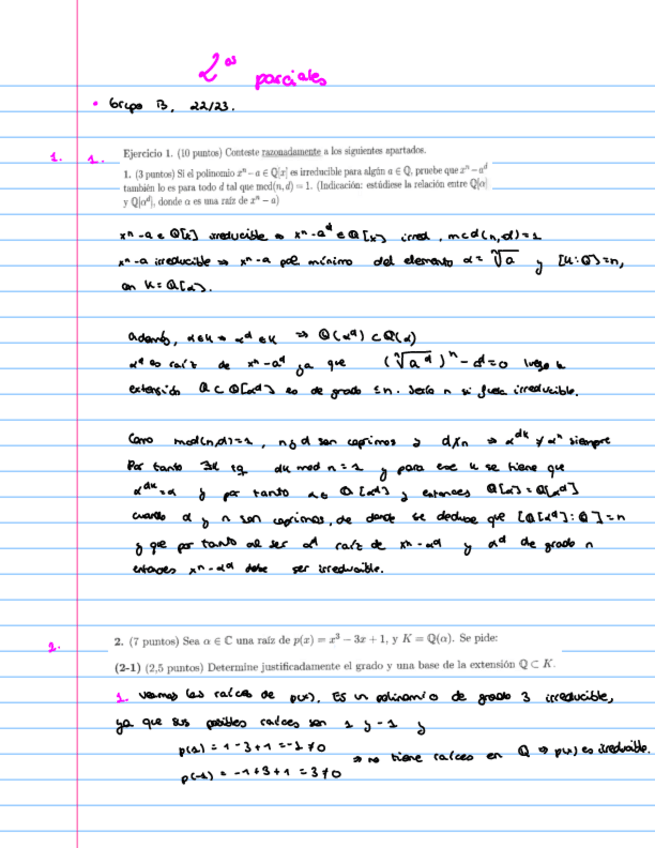 2as parciales
• Grupo B, 22/23.
1. 1. Ejercicio 1. (10 puntos) Conteste razonadamente a los siguientes apartados.
1. (3 puntos) Si el polinomio xⁿ − a ∈ Q[x] es irreducible para algún a ∈ Q, pruebe que xⁿ − aᵈ
también lo es para todo d tal que mcd(n, d) = 1. (Indicación: estúdiese la relación entre Q[α]
y Q[αᵈ], donde α es una raíz de xⁿ − a)
xⁿ-a ∈ Q[x] irreducible ⇒ xⁿ-aᵈ ∈ Q[x] irred, mcd(n,d)=1
xⁿ-a irreducible ⇒ xⁿ-a pol mínimo del elemento α = ⁿ√a y [K:Q]=n,
con K=Q[α].
además, α∈K ⇒ αᵈ∈K ⇒ Q(αᵈ) ⊂ Q(α)
αᵈ es raíz de xⁿ-aᵈ ya que (ⁿ√aᵈ)ⁿ - aᵈ=0 luego la
extensión Q ⊂ Q[αᵈ] es de grado ≤n. Sería n si fuera irreducible.
Como mcd(n,d)=1, n y d son coprimos y d∤n ⇒ siempre
Por tanto ∃k tq dk mod n = 1 y para ese k se tiene que
αᵈᵏ=α y por tanto α∈ Q[αᵈ] y entonces Q[α]=Q[αᵈ]
cuando d y n son coprimos, de donde se deduce que [Q[αᵈ]:Q]=n
y que por tanto al ser αᵈ raíz de xⁿ-aᵈ y αᵈ de grado n
entonces xⁿ-aᵈ debe ser irreducible.
2. 2. (7 puntos) Sea α ∈ C una raíz de p(x) = x³ − 3x + 1, y K = Q(α). Se pide:
(2-1) (2,5 puntos) Determine justificadamente el grado y una base de la extensión Q ⊂ K.
1. Veamos las raíces de p(x). Es un polinomio de grado 3 irreducible,
ya que sus posibles raíces son 1 y -1 y
p(1) = 1-3+1 = -1 ≠0
⇒ no tiene raíces en Q ⇒ p(x) es irreducible.
p(-1) = -1+3+1 = 3≠0